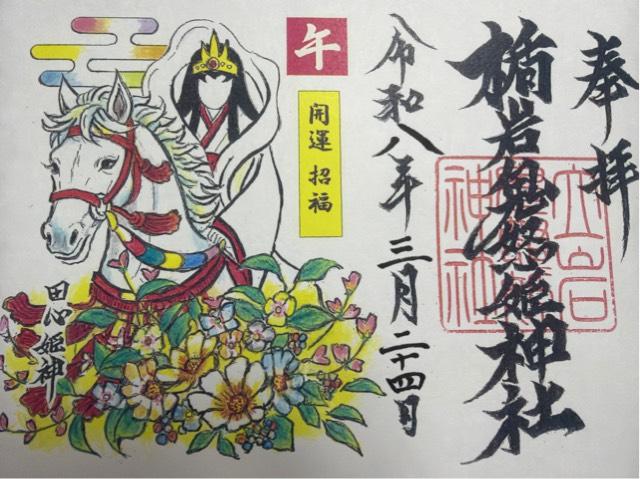 奉拝
楯岩鬼怒姫神社
神社
令和八年三月二十四日
午
開運 招福
田心姫神